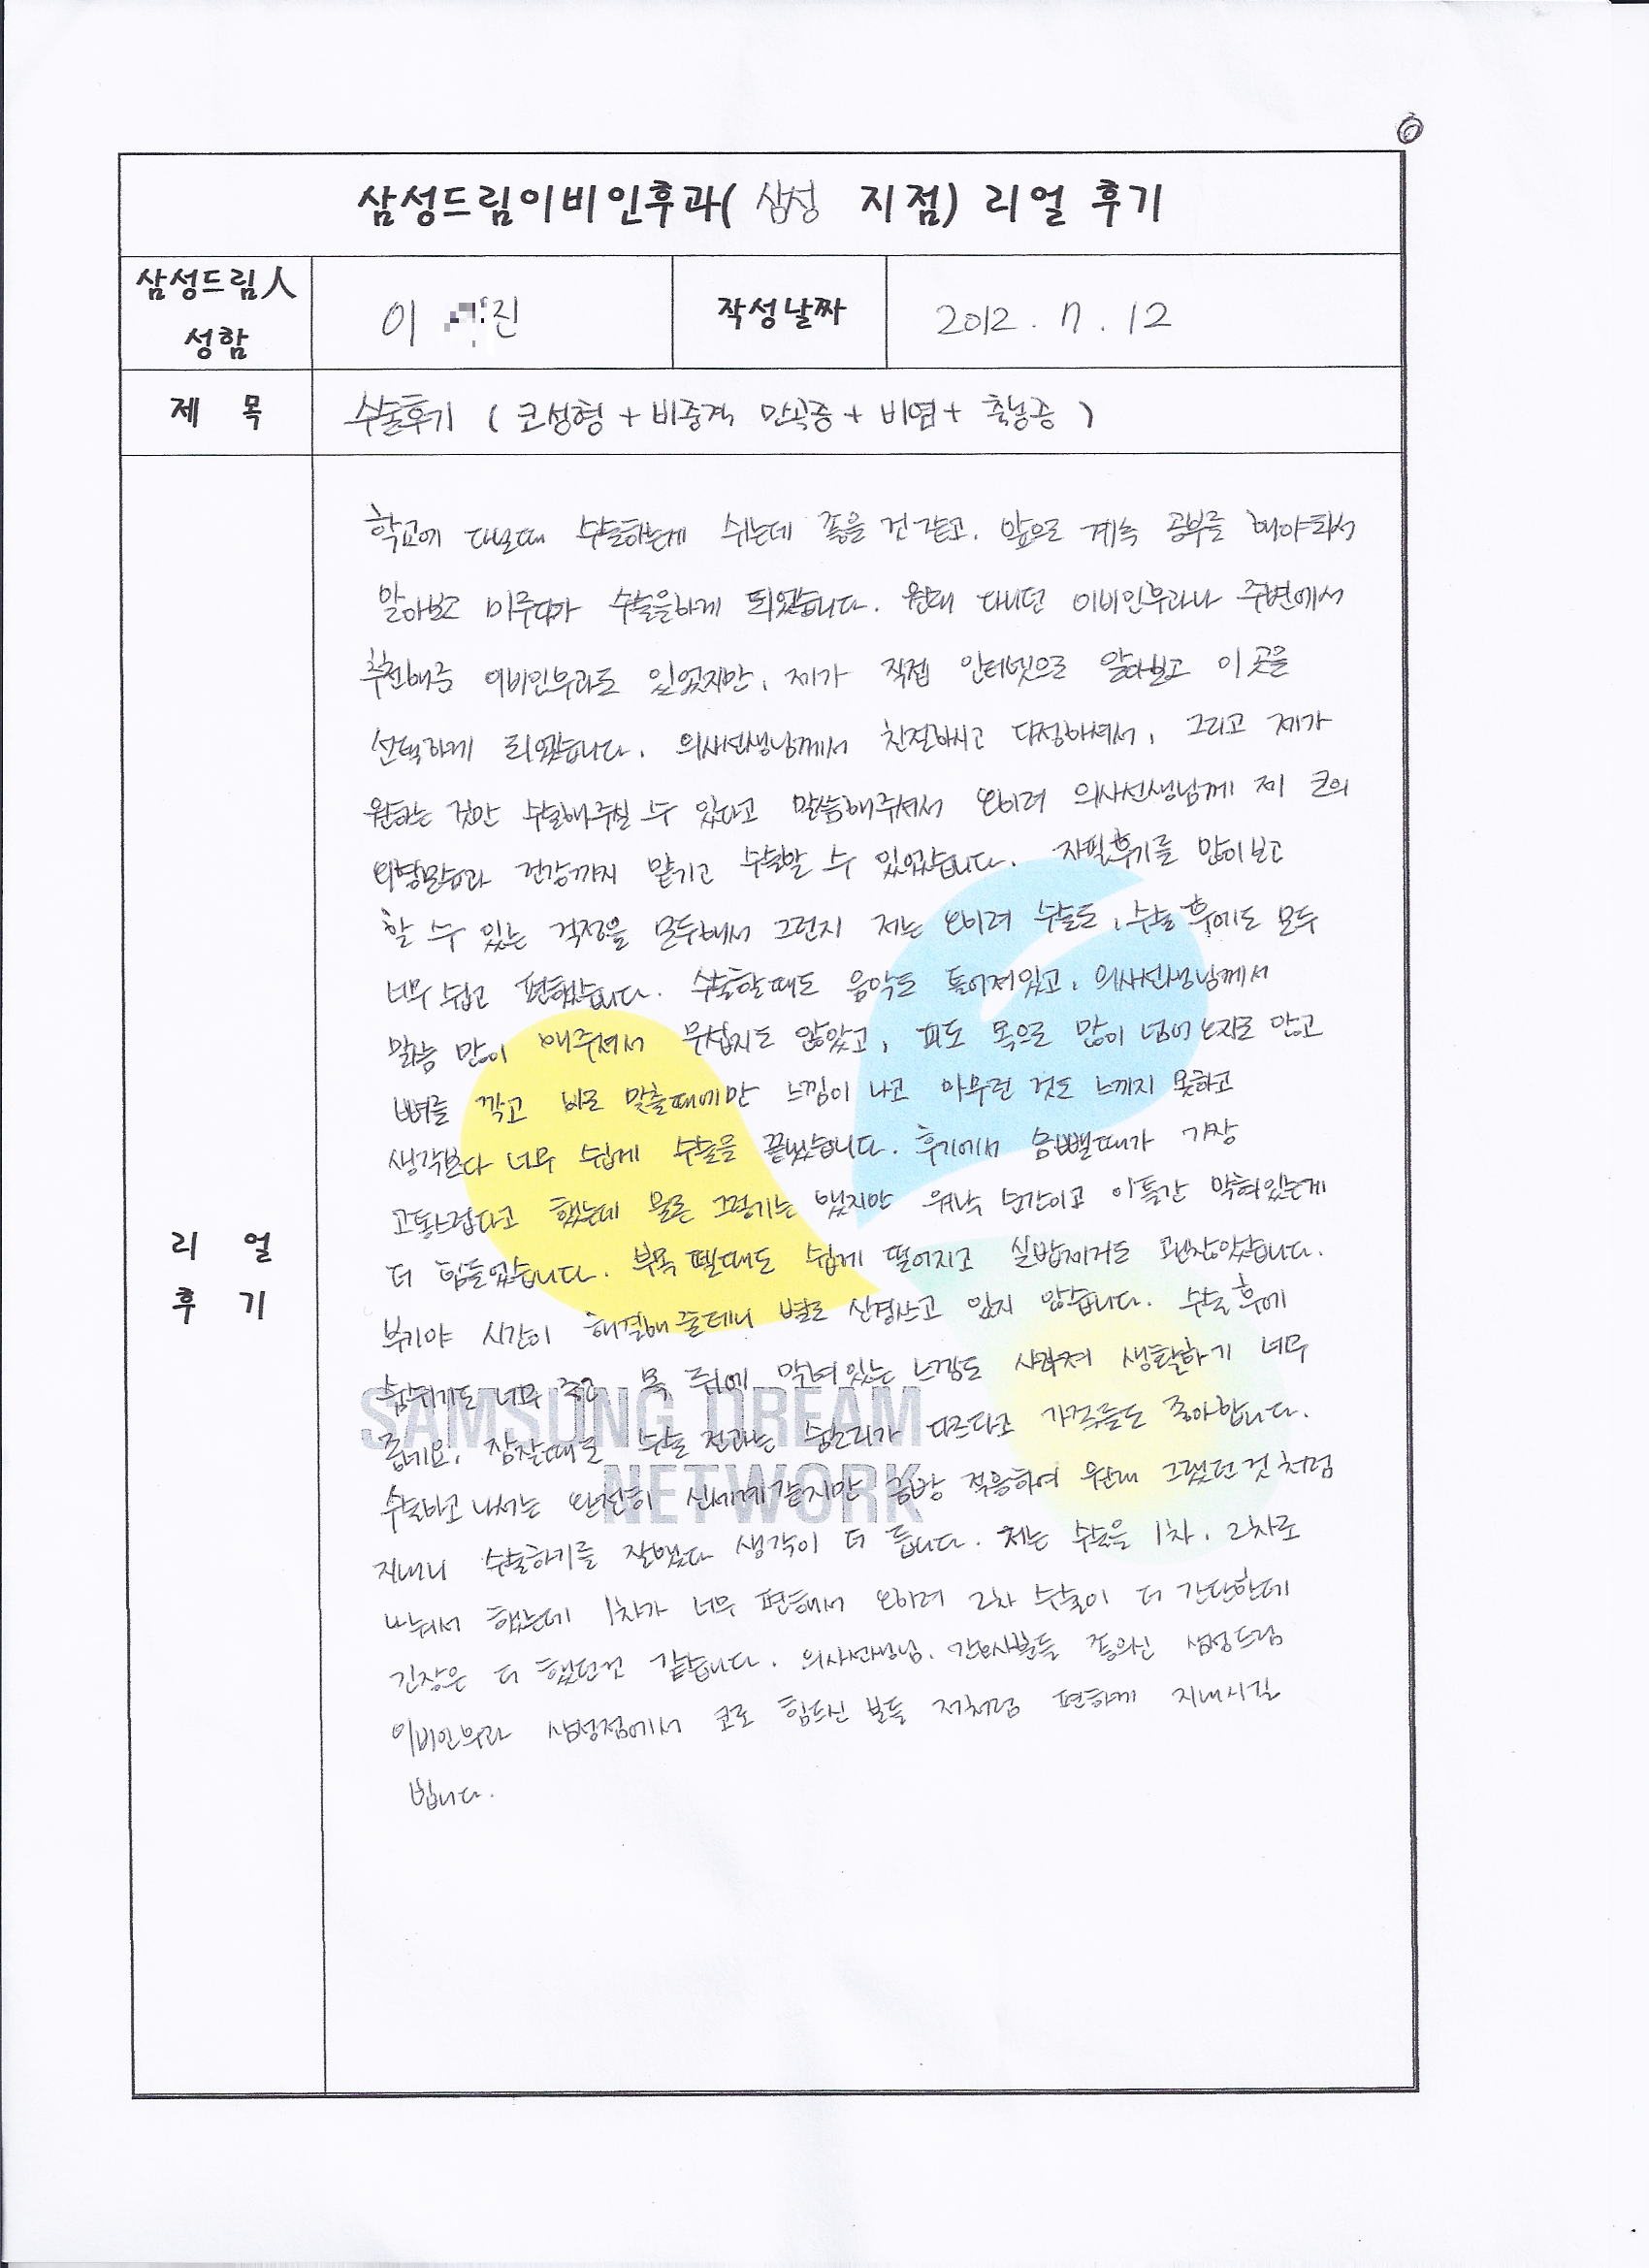 삼성드림이비인후과( 삼성 지점) 리얼 후기
삼성드림人
성함
이 진
작성날짜
2012 . 7 . 12
제 목
수술후기 ( 코성형 + 비중격 만곡증 + 비염 + 축농증 )
리 얼
후 기
학교에 다닐때 수술하는게 쉬는데 좋을 건 같고. 앞으로 계속 공부를 해야되서
알아보고 미루다가 수술을하게 되었습니다. 원래 다니던 이비인후과나 주변에서
추천해준 이비인후과도 있었지만, 제가 직접 인터넷으로 알아보고 이곳을
선택하게 되었습니다. 의사선생님께서 친절하시고 다정하셔서, 그리고 제가
원하는 것만 수술해주실 수 있다고 말씀해주셔서 오히려 의사선생님께 제 코의
외형모습과 건강까지 맡기고 수술할 수 있었습니다. 자필후기를 많이보고
할 수 있는 걱정을 모두해서 그런지 저는 오히려 수술도, 수술 후에도 모두
너무 쉽고 편했습니다. 수술할때도 음악도 틀어져있고, 의사선생님께서
말씀 많이 해주셔서 무섭지도 않았고, 피도 목으로 많이 넘어오지도 않고
뼈를 깍고 바로 맞출때에만 느낌이 나고 아무런 것도 느끼지 못하고
생각보다 너무 쉽게 수술을 끝냈습니다. 후기에서 솜뺄때가 가장
고통스럽다고 했는데 물론 그렇기는 했지만 워낙 순간이고 이틀간 막혀있는게
더 힘들었습니다. 부목 뗄때도 쉽게 떨어지고 실밥제거도 괜찮았습니다.
붓기야 시간이 해결해 줄테니 별로 신경쓰고 있지 않습니다. 수술 후에
숨쉬기도 너무 좋고 목 뒤에 막혀있는 느낌도 사라져 생활하기 너무
좋네요. 잠잘때도 수술 전과는 숨소리가 다르다고 가족들도 좋아합니다.
수술하고 나서는 완전히 신세계같지만 금방 적응하여 원래 그랬던것처럼
지내니 수술하기를 잘했다 생각이 더 듭니다. 저는 수술을 1차, 2차로
나눠서 했는데 1차가 너무 편해서 오히려 2차 수술이 더 간단한데
긴장은 더 했던것 같습니다. 의사선생님, 간호사분들 좋으신 삼성드림
이비인후과 삼성점에서 코로 힘드신 분들 저처럼 편하게 지내시길
빕니다.
SAMSUNG DREAM
NETWORK